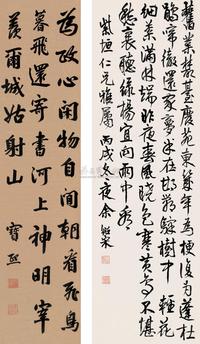 舊業叢臺廢苑東幾年為梗復為蓬杜
鵑啼斷還家夢半在邯鄲驛樹中輕花
細葉滿林端昨夜春風曉色寒黃鳥不堪
愁裏聽綠楊宜向雨中看
紫垣仁兄雅屬 丙戌冬夜余紹宋
為政心閑物自閒朝看飛鳥
暮飛還寄書河上神明宰
羨爾城姑射山
寶熙